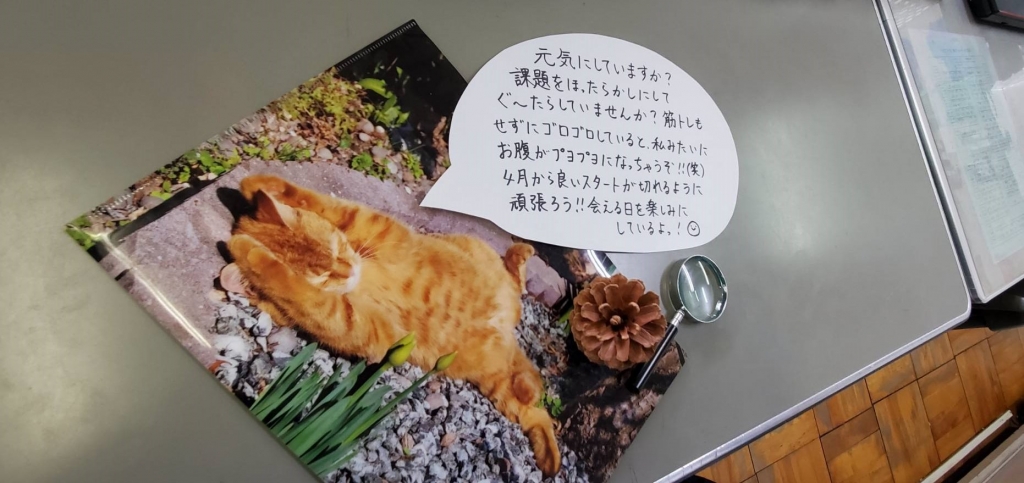 元気にしていますか?
課題をほったらかしにして
ぐ〜たらしていませんか?筋トレも
せずにゴロゴロしていると、私みたいに
お腹がプヨプヨになっちゃうぞ!!(笑)
4月から良いスタートが切れるように
頑張ろう!!会える日を楽しみに
しているよっ!